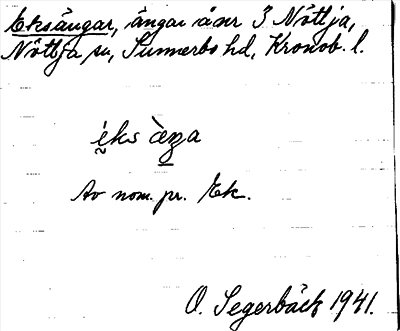 Eksängar, ängar å nr 3 Nöttja,
Nöttja sn, Sunnerbo hd, Kronob. l.
Av nom. pr. Ek.
O. Segerbäck 1941.